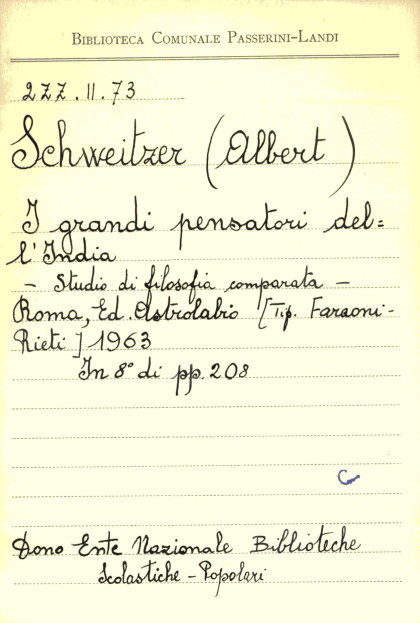 BIBLIOTECA COMUNALE PASSERINI-LANDI
2ZZ.II.73
Schweitzer (Albert)
I grandi pensatori del=
l'India
- Studio di filosofia comparata -
Roma, Ed. Astrolabio [Tip. Faraoni-
Rieti] 1963
In 8° di pp. 208
Dono Ente Nazionale Biblioteche
Scolastiche - Popolari